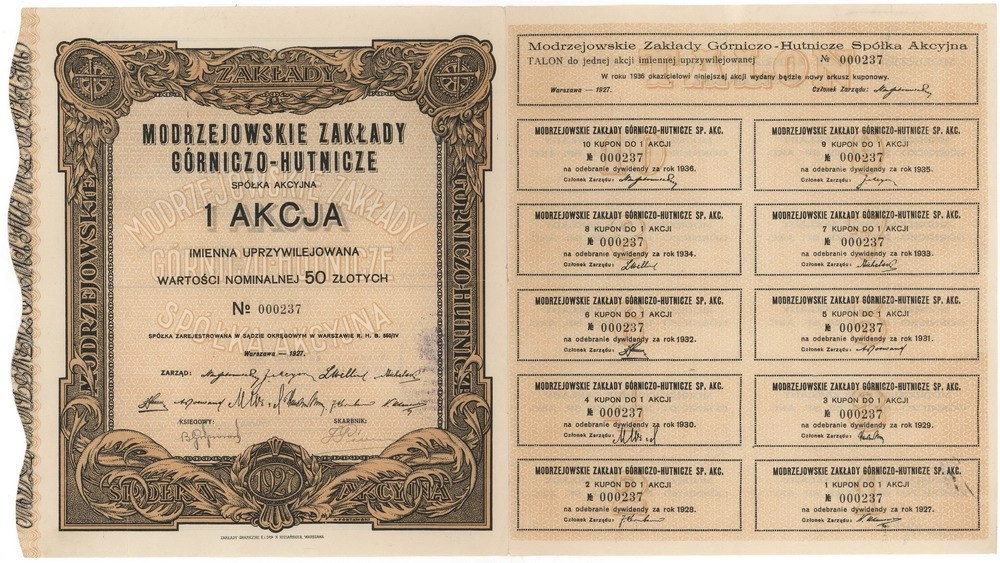 ZAKŁADY
MODRZEJOWSKIE
GÓRNICZO-HUTNICZE
MODRZEJOWSKIE ZAKŁADY
GÓRNICZO-HUTNICZE
SPÓŁKA AKCYJNA
1 AKCJA
IMIENNA UPRZYWILEJOWANA
WARTOŚCI NOMINALNEJ 50 ZŁOTYCH
№ 000237
SPÓŁKA ZAREJESTROWANA W SĄDZIE OKRĘGOWYM W WARSZAWIE R. H. B.
Warszawa — 1927.
ZARZĄD:
KSIĘGOWY: SKARBNIK:
1927
SPÓŁKA AKCYJNA
Modrzejowskie Zakłady Górniczo-Hutnicze Spółka Akcyjna
TALON do jednej akcji imiennej uprzywilejowanej № 000237
W roku 1936 okazicielowi niniejszej akcji wydany będzie nowy arkusz kuponowy.
Warszawa — 1927. Członek Zarządu:
MODRZEJOWSKIE ZAKŁADY GÓRNICZO-HUTNICZE SP. AKC.
10 KUPON DO 1 AKCJI
№ 000237
na odebranie dywidendy za rok 1936.
Członek Zarządu:
MODRZEJOWSKIE ZAKŁADY GÓRNICZO-HUTNICZE SP. AKC.
9 KUPON DO 1 AKCJI
№ 000237
na odebranie dywidendy za rok 1935.
Członek Zarządu:
MODRZEJOWSKIE ZAKŁADY GÓRNICZO-HUTNICZE SP. AKC.
8 KUPON DO 1 AKCJI
№ 000237
na odebranie dywidendy za rok 1934.
Członek Zarządu:
MODRZEJOWSKIE ZAKŁADY GÓRNICZO-HUTNICZE SP. AKC.
7 KUPON DO 1 AKCJI
№ 000237
na odebranie dywidendy za rok 1933.
Członek Zarządu:
MODRZEJOWSKIE ZAKŁADY GÓRNICZO-HUTNICZE SP. AKC.
6 KUPON DO 1 AKCJI
№ 000237
na odebranie dywidendy za rok 1932.
Członek Zarządu:
MODRZEJOWSKIE ZAKŁADY GÓRNICZO-HUTNICZE SP. AKC.
5 KUPON DO 1 AKCJI
№ 000237
na odebranie dywidendy za rok 1931.
Członek Zarządu:
MODRZEJOWSKIE ZAKŁADY GÓRNICZO-HUTNICZE SP. AKC.
4 KUPON DO 1 AKCJI
№ 000237
na odebranie dywidendy za rok 1930.
Członek Zarządu:
MODRZEJOWSKIE ZAKŁADY GÓRNICZO-HUTNICZE SP. AKC.
3 KUPON DO 1 AKCJI
№ 000237
na odebranie dywidendy za rok 1929.
Członek Zarządu:
MODRZEJOWSKIE ZAKŁADY GÓRNICZO-HUTNICZE SP. AKC.
2 KUPON DO 1 AKCJI
№ 000237
na odebranie dywidendy za rok 1928.
Członek Zarządu:
MODRZEJOWSKIE ZAKŁADY GÓRNICZO-HUTNICZE SP. AKC.
1 KUPON DO 1 AKCJI
№ 000237
na odebranie dywidendy za rok 1927.
Członek Zarządu: